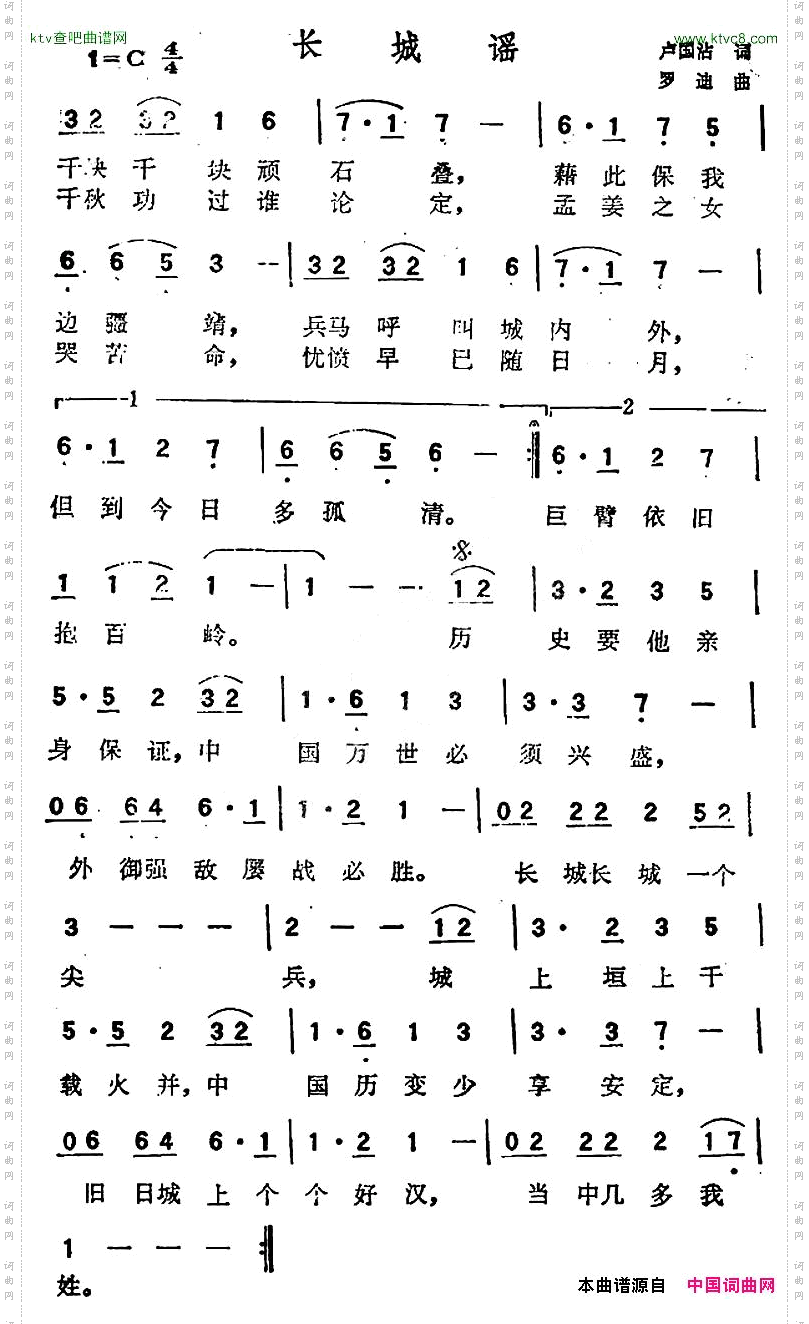 ktv查吧曲谱网
www.ktvc8.com
长城谣
1=C 4/4
卢国沾 词
罗迪曲
32 32 1 6 | 7·1 7 — | 6·1 7 5 |
千块千块顽石叠，藉此保我
千秋功过谁论定，孟姜之女
6 6 5 3 -- | 32 32 1 6 | 7·1 7 — |
边疆靖，兵马呼叫城内外，
哭苦命，忧愤早已随日月，
1 2
6·1 2 7 | 6 6 5 6 — :‖ 6·1 2 7 |
但到今日多孤清。巨臂依旧
1 1 2 1 — | 1 — · 12 | 3·2 3 5 |
抱百岭。历史要他亲
5·5 2 32 | 1·6 1 3 | 3·3 7 — |
身保证，中国万世必须兴盛，
06 64 6·1 | 1·2 1 — | 02 22 2 52 |
外御强敌屡战必胜。长城长城一个
3 — — — | 2 — — 12 | 3· 2 3 5 |
尖兵，城上垣上千
5·5 2 32 | 1·6 1 3 | 3· 3 7 — |
载火并，中国历变少享安定，
06 64 6·1 | 1·2 1 — | 02 22 2 17 |
旧日城上个个好汉，当中几多我
1 — — — :‖
姓。
本曲谱源自 中国词曲网